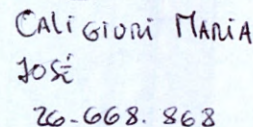 CALIGIURI MARIA
JOSÉ
26-668.868